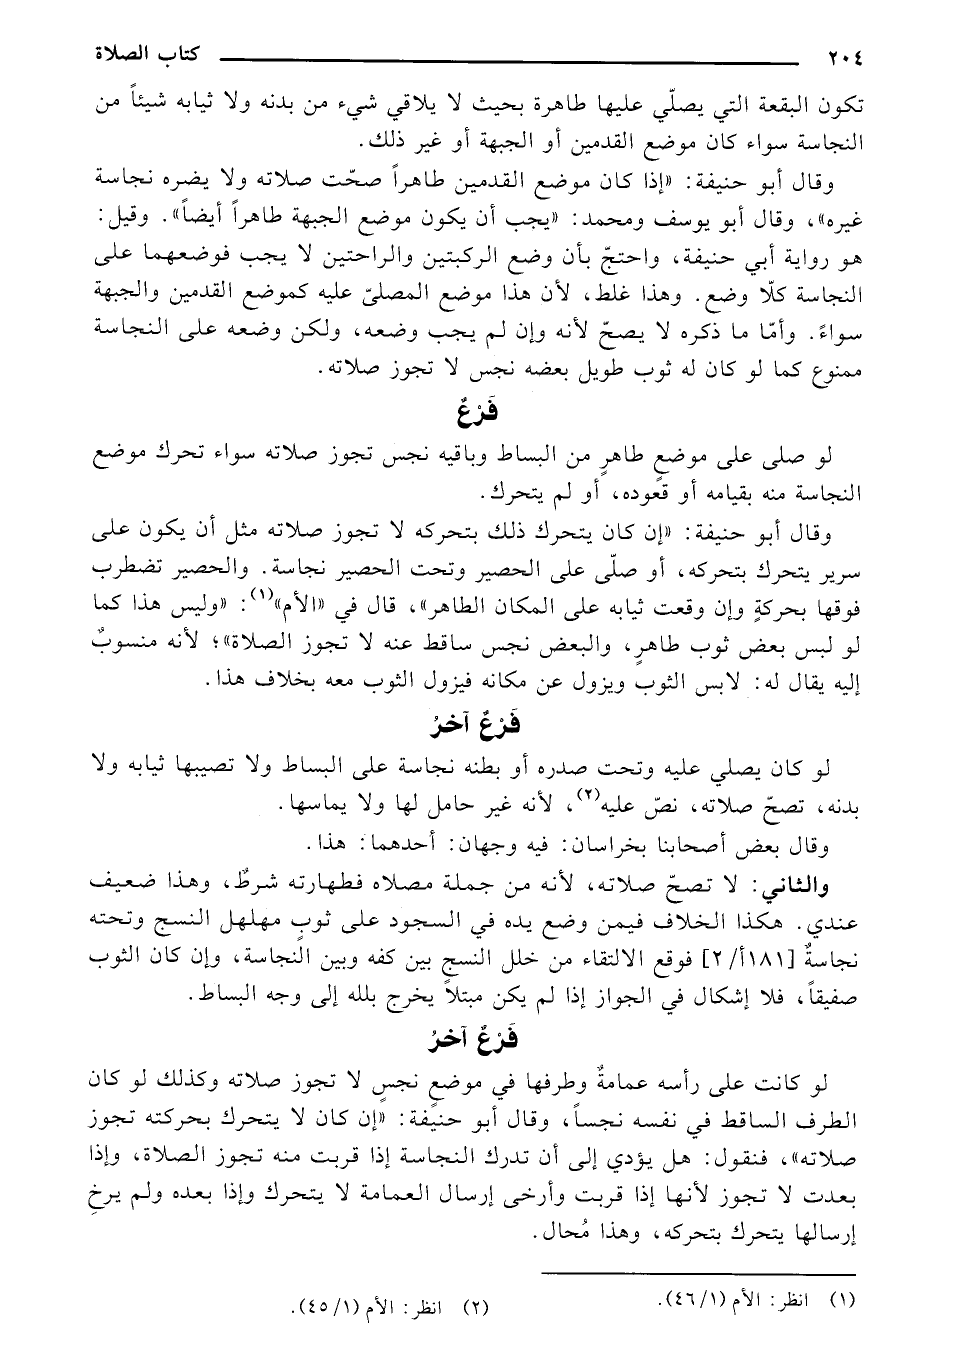 ٢٠٤ كتاب الصلاة
تكون البقعة التي يصلّي عليها طاهرة بحيث لا يلاقي شيء من بدنه ولا ثيابه شيئاً من
النجاسة سواء كان موضع القدمين أو الجبهة أو غير ذلك.
وقال أبو حنيفة: «إذا كان موضع القدمين طاهراً صحّت صلاته ولا يضره نجاسة
غيره»، وقال أبو يوسف ومحمد: «يجب أن يكون موضع الجبهة طاهراً أيضاً». وقيل:
هو رواية أبي حنيفة، واحتجّ بأن وضع الركبتين والراحتين لا يجب فوضعهما على
النجاسة كلّا وضع. وهذا غلط، لأن هذا موضع المصلىّ عليه كموضع القدمين والجبهة
سواءً. وأمّا ما ذكره لا يصحّ لأنه وإن لم يجب وضعه، ولكن وضعه على النجاسة
ممنوع كما لو كان له ثوب طويل بعضه نجس لا تجوز صلاته.
فَرْعٌ
لو صلى على موضعٍ طاهرٍ من البساط وباقيه نجس تجوز صلاته سواء تحرك موضع
النجاسة منه بقيامه أو قعوده، أو لم يتحرك.
وقال أبو حنيفة: «إن كان يتحرك ذلك بتحركه لا تجوز صلاته مثل أن يكون على
سرير يتحرك بتحركه، أو صلّى على الحصير وتحت الحصير نجاسة. والحصير تضطرب
فوقها بحركةٍ وإن وقعت ثيابه على المكان الطاهر»، قال في «الأم»(١): «وليس هذا كما
لو لبس بعض ثوب طاهرٍ، والبعض نجس ساقط عنه لا تجوز الصلاة»؛ لأنه منسوبٌ
إليه يقال له: لابس الثوب ويزول عن مكانه فيزول الثوب معه بخلاف هذا.
فَرْعٌ آخرُ
لو كان يصلي عليه وتحت صدره أو بطنه نجاسة على البساط ولا تصيبها ثيابه ولا
بدنه، تصحّ صلاته، نصّ عليه(٢)، لأنه غير حامل لها ولا يماسها.
وقال بعض أصحابنا بخراسان: فيه وجهان: أحدهما: هذا.
والثاني: لا تصحّ صلاته، لأنه من جملة مصلاه فطهارته شرطٌ، وهذا ضعيف
عندي. هكذا الخلاف فيمن وضع يده في السجود على ثوبٍ مهلهل النسج وتحته
نجاسةٌ [١٨١أ/ ٢] فوقع الالتقاء من خلل النسج بين كفه وبين النجاسة، وإن كان الثوب
صفيقاً، فلا إشكال في الجواز إذا لم يكن مبتلاً يخرج بلله إلى وجه البساط.
فَرْعٌ آخرُ
لو كانت على رأسه عمامةٌ وطرفها في موضعٍ نجسٍ لا تجوز صلاته وكذلك لو كان
الطرف الساقط في نفسه نجساً، وقال أبو حنيفة: «إن كان لا يتحرك بحركته تجوز
صلاته»، فنقول: هل يؤدي إلى أن تدرك النجاسة إذا قربت منه تجوز الصلاة، وإذا
بعدت لا تجوز لأنها إذا قربت وأرخى إرسال العمامة لا يتحرك وإذا بعده ولم يرخِ
إرسالها يتحرك بتحركه، وهذا مُحال.
(١) انظر: الأم (١/ ٤٦).
(٢) انظر: الأم (١/ ٤٥).